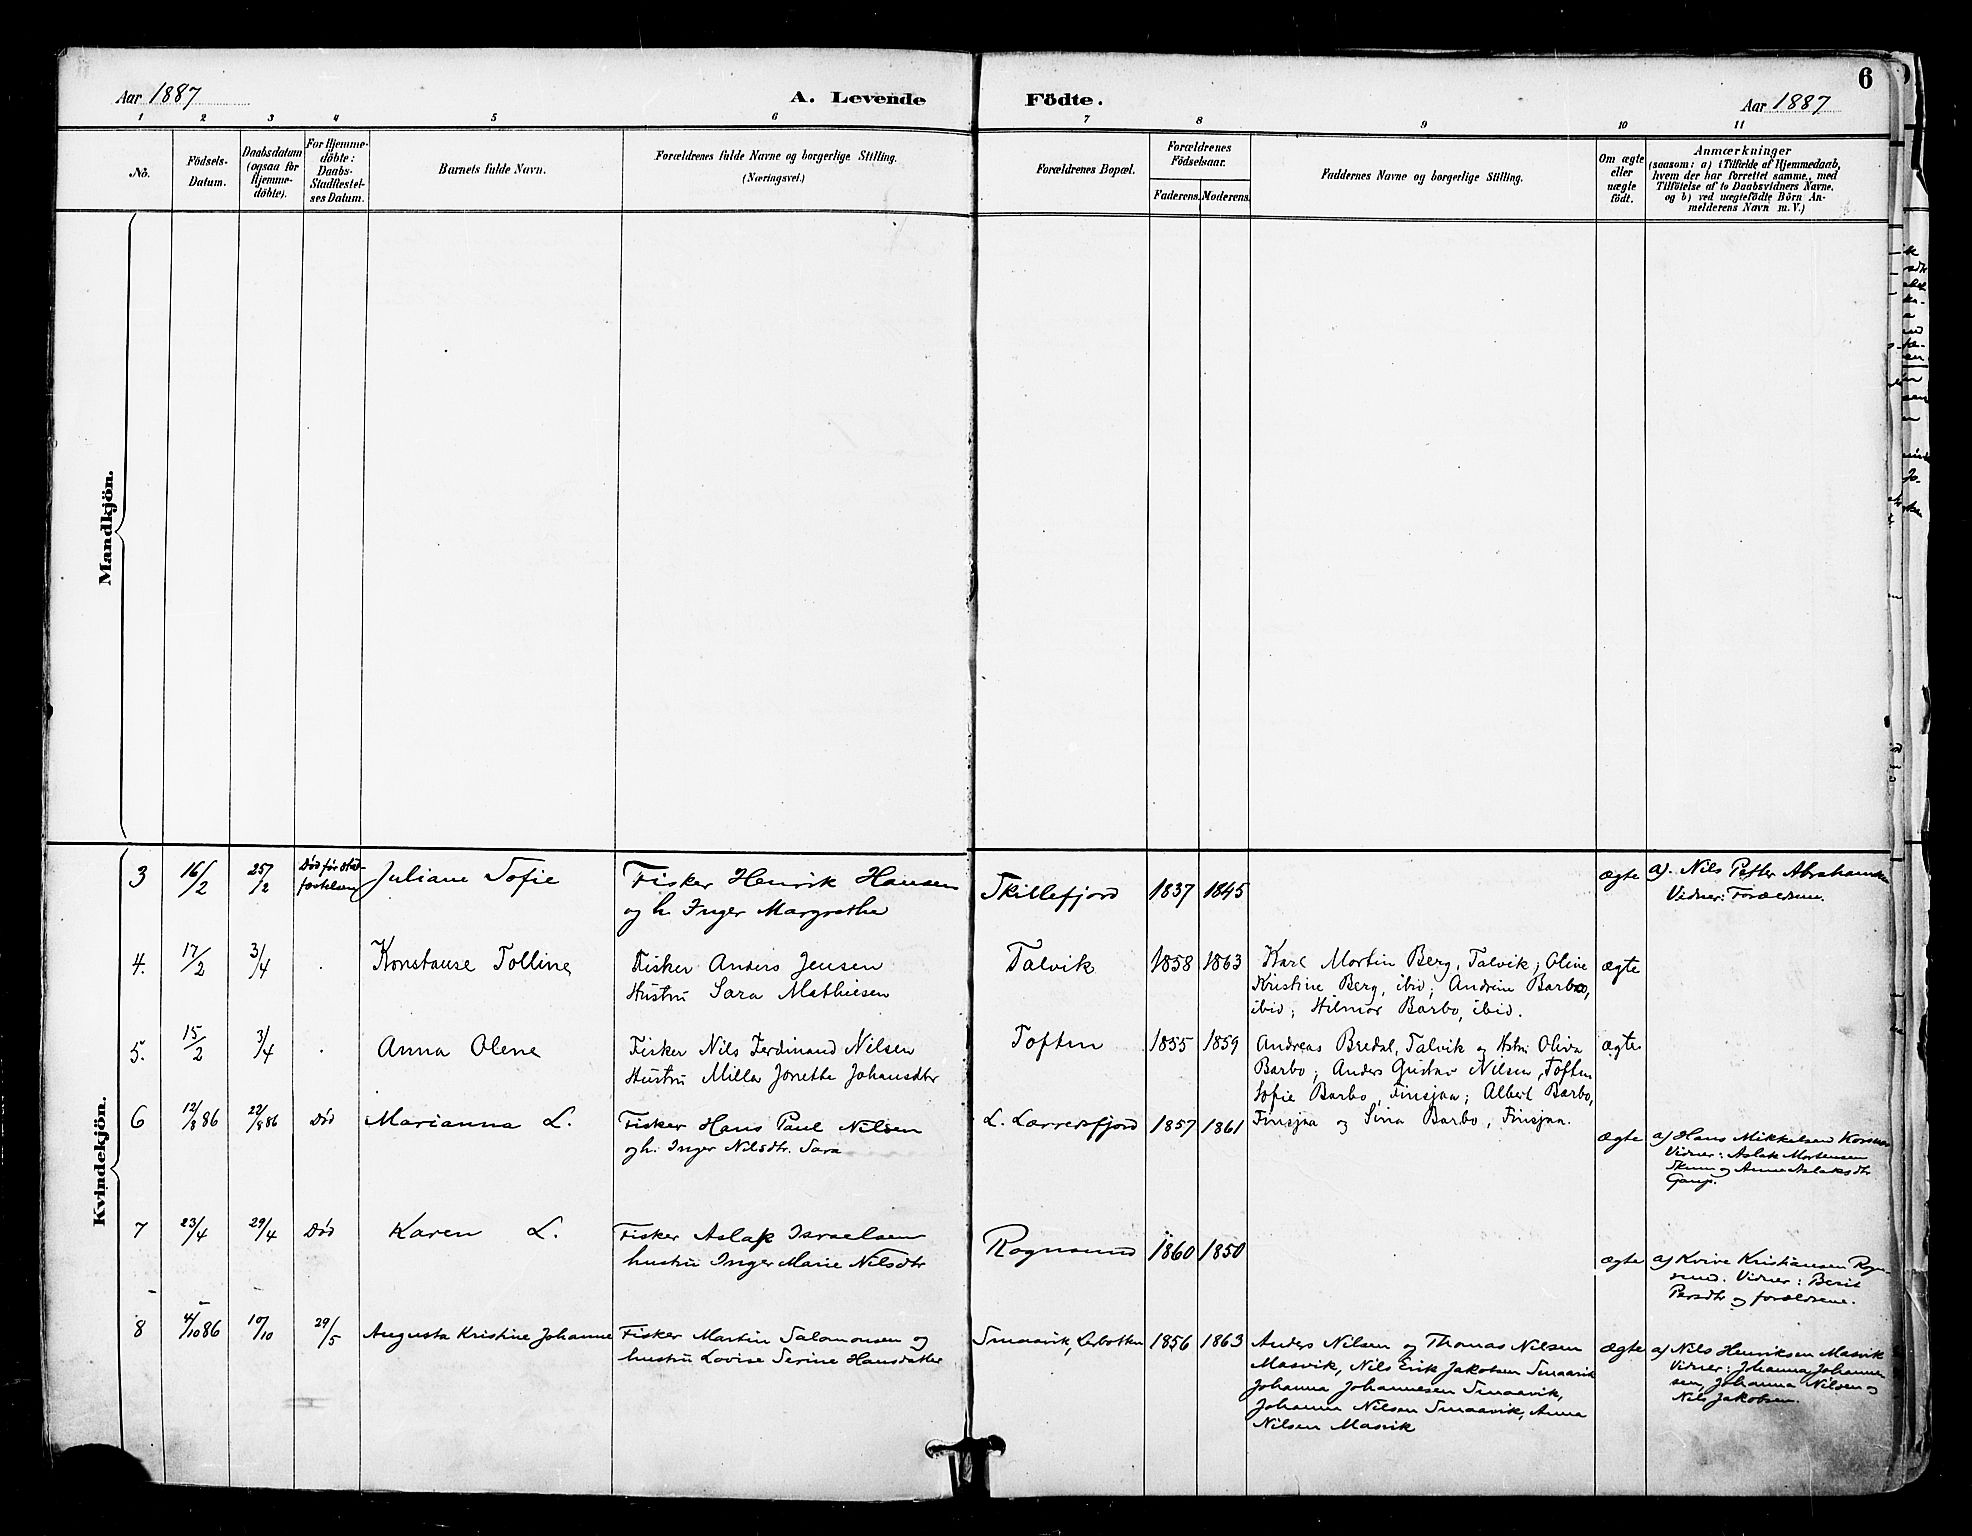 6
Aar 1887
A. Levende Födte.
Aar 1887
1 2 3 4 5 6 7 8 9 10 11
No.
Födsels-
Datum.
Daabsdatum
(ogsaa for
Hjemme-
döbte).
For Hjemme-
döbte:
Daabs-
Stadfæstel-
ses Datum.
Barnets fulde Navn.
Forældrenes fulde Navne og borgerlige Stilling.
(Næringsvei.)
Forældrenes Bopæl.
Forældrenes
Födselsaar.
Faderens. Moderens.
Faddernes Navne og borgerlige Stilling.
Om ægte
eller
uægte
födt.
Anmærkninger
(saasom: a) i Tilfælde af Hjemmedaab,
hvem der har forrettet samme, med
Tilföielse af to Daabsvidners Navne.
og b) ved uægtefödte Börn An-
melderens Navn m. V.)
Mandkjön.
Kvindekjön.
3 16/2 25/2 Død før stad-
fæstelsen
Juliane Sofie
Fisker Henrik Hansen
og h. Inger Margrethe
Skillefjord 1837 1845
ægte
a). Nils Petter Abrahamsen
Vidner: Forældrene.
4. 17/2 3/4 .
Konstanse Tolline
Fisker Anders Jensen
Hustru Sara Mathiesen
Talvik 1858 1863
Karl Martin Berg, Talvik; Oline
Kristine Berg, ibid; Andrine Barbo,
ibid; Hilmar Barbo, ibid.
ægte
5. 15/2 3/4 .
Anna Olene
Fisker Nils Ferdinand Nilsen
Hustru Milla Jonetta Johansdtr
Toften 1855 1859
Andreas Bredal, Talvik og Hstru Oliva
Barbo; Anders Gustav Nilsen, Toften
Sofie Barbo, Finsjaa; Albert Barbo,
Finsjaa og Sina Barbo, Finsjaa.
ægte
6 12/8 86 22/8 86 Død
Marianna L.
Fisker Hans Paul Nilsen
og h. Inger Nilsdtr. Sara
L. Lærresfjord 1857 1861
ægte
a) Hans Mikkelsen
Vidner: Aslak Mortensen
og Anne Aslaksdtr
7 23/4 29/4 Død
Karen L.
Fisker Aslak Israelsen
hustru Inger Marie Nilsdtr
Rognsund 1860 1850
ægte
a) Kristiansen Rogn-
sund. Vidner: Berit
Persdtr og forældrene.
8 4/10 86 10/10 29/5
Augusta Kristine Johanne
Fisker Martin Salomonsen og
hustru Lovise Serine Hansdatter
Smaavik, Lerbotten 1856 1863
Anders Nilsen og Thomas Nilsen
Masvik, Nils Erik Jakobsen Smaavik
Johanna Johannesen Smaavik,
Johanna Nilsen Smaavik, Anna
Nilsen Masvik
ægte
a) Nils Henriksen Masvik
Vidner: Johanna Johanne-
sen, Johanna Nilsen og
Nils Jakobsen.